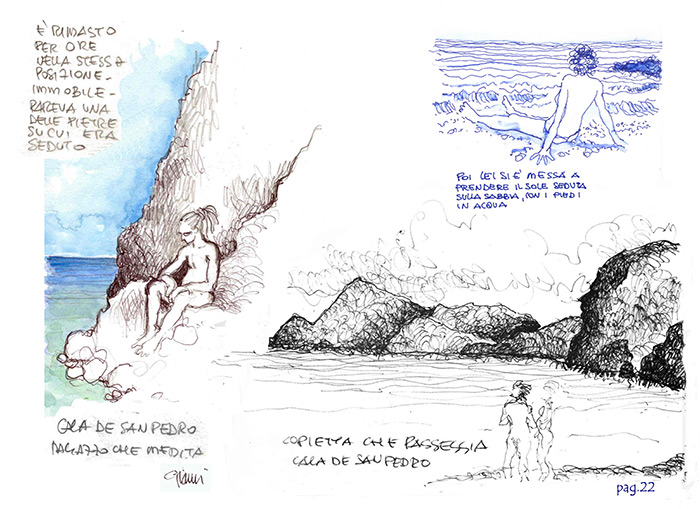 È RIMASTO
PER ORE
NELLA STESSA
POSIZIONE-
IMMOBILE-
PAREVA UNA
DELLE PIETRE
SU CUI ERA
SEDUTO
POI LEI SI E' MESSA A
PRENDERE IL SOLE SEDUTA
SULLA SABBIA, CON I PIEDI
IN ACQUA
CALA DE SAN PEDRO
RAGAZZO CHE MEDITA
Gianni
COPIETTA CHE PASSEGGIA
CALA DE SAN PEDRO
pag.22